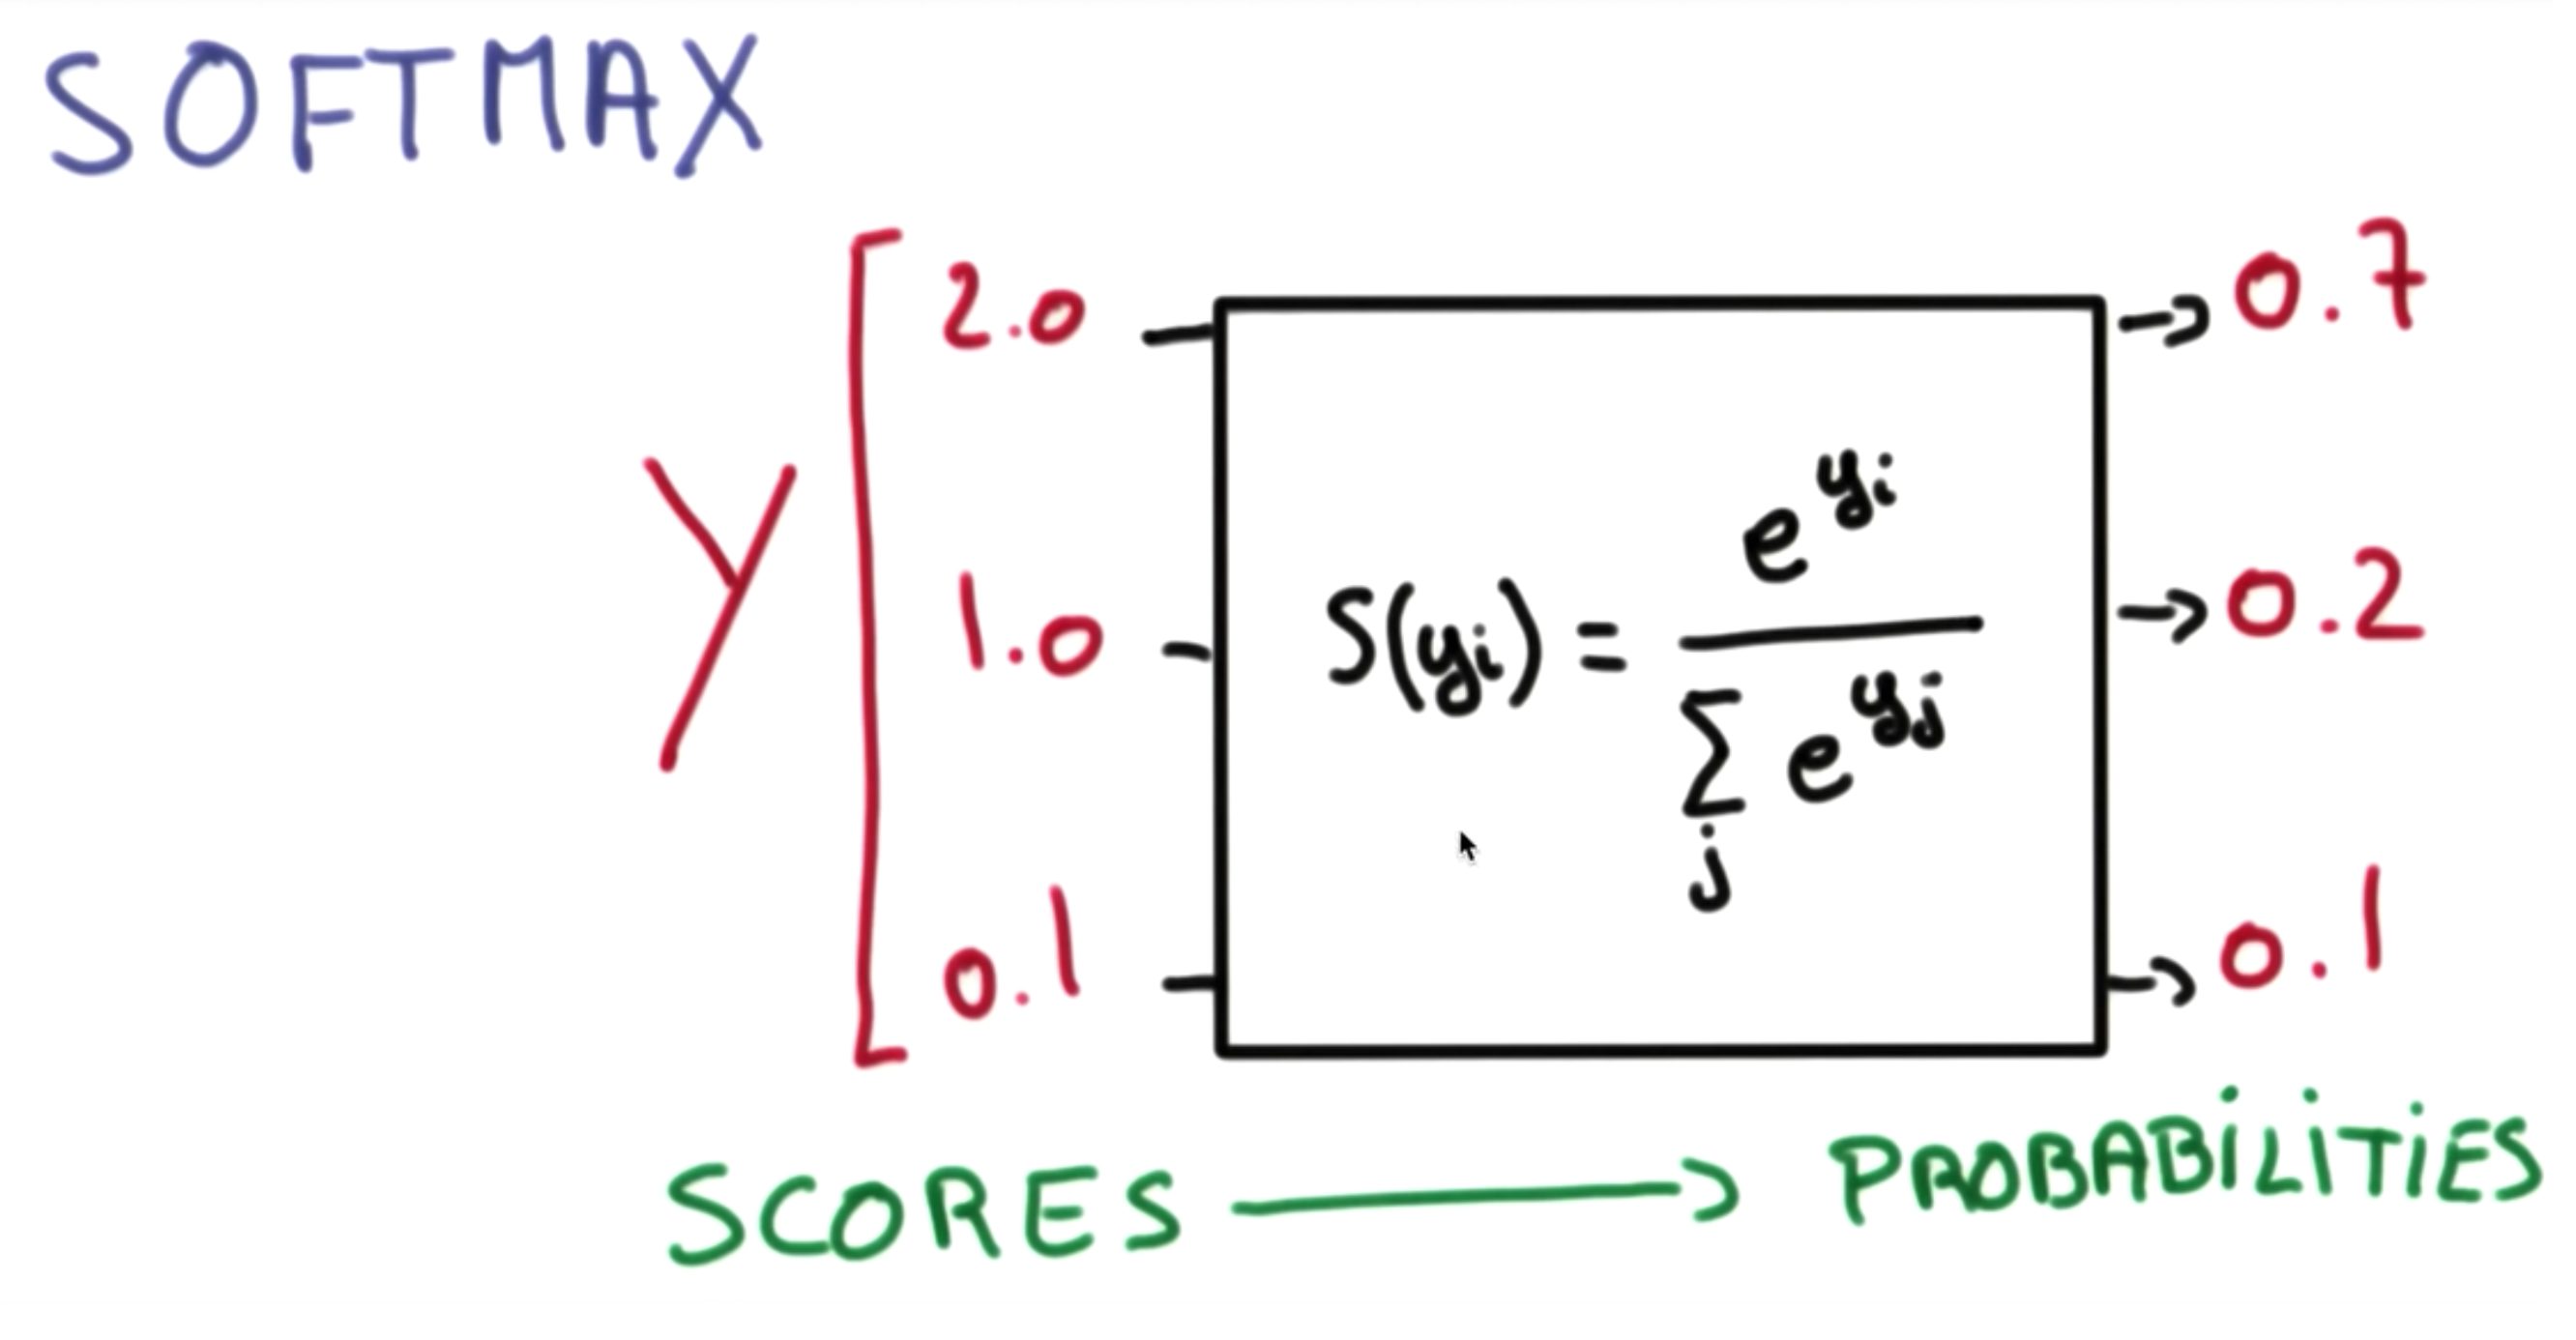 SOFTMAX
Y [ 2.0 → 0.7
1.0 S(yi) = e^yi / Σj e^yj → 0.2
0.1 → 0.1
SCORES → PROBABiLiTiES